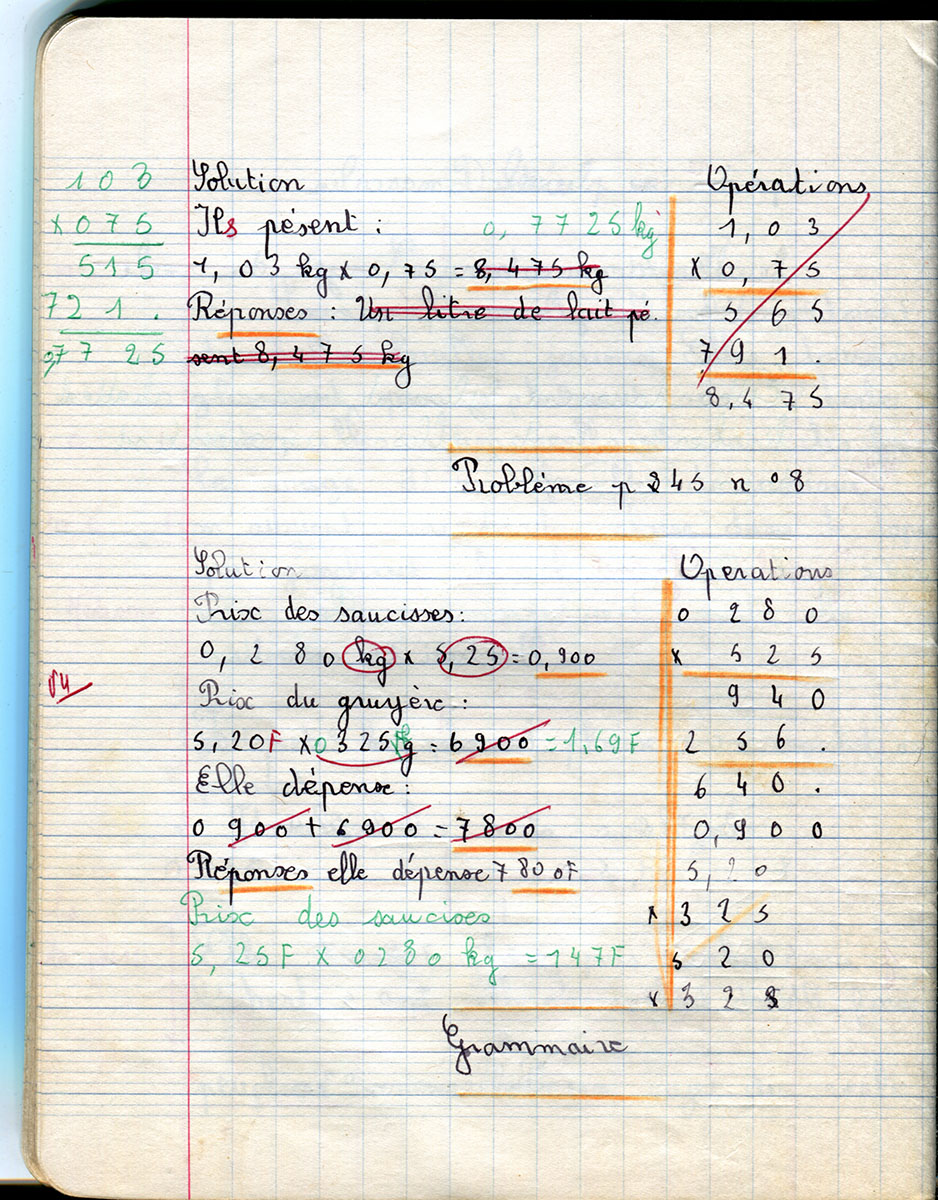 1 0 3
× 0 7 5
5 1 5
7 2 1 .
0,7 7 2 5
Solution
Ils pésent : 0, 7 7 2 5 kg
1, 0 3 kg × 0, 75 = 8, 475 kg
Réponses : Un litre de lait pé.
sent 8, 4 7 5 kg
Opérations
1, 0 3
× 0, 7 5
5 6 5
7 9 1 .
8, 4 7 5
Problème p 245 n ° 8
Solution
Prix des saucisses:
0, 2 8 0 kg × 5, 25 = 0, 900
Prix du gruyère :
5, 20F × 0 325 kg = 6900 = 1,69F
Elle dépense :
0 900 + 6 900 = 7800
Réponses elle dépense 7 80 0F
Prix des saucises
5, 25F × 0280 kg = 147F
Operations
0 2 8 0
× 5 2 5
9 4 0
2 5 6 .
6 4 0 .
0, 9 0 0
5, 2 0
× 3 2 5
5 2 0
× 3 2 5
Grammaire